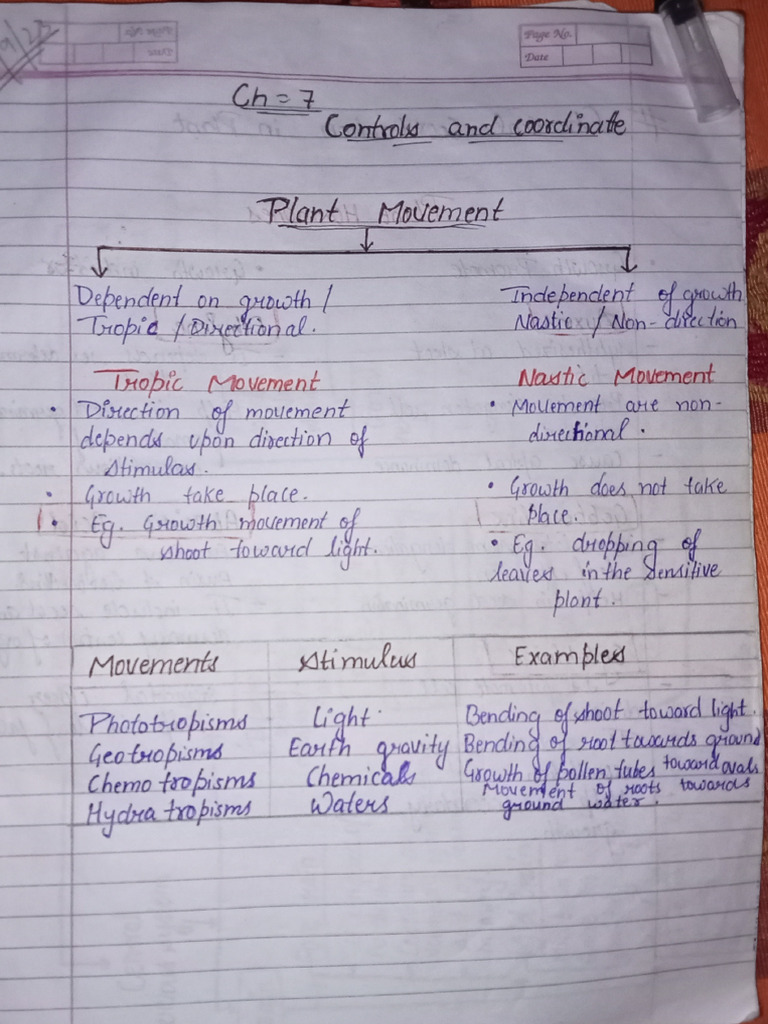 Page No.
Date
Ch = 7
Controls and coordinate
Plant Movement
Dependent on growth /
Tropic / Directional.
Independent of growth
Nastic / Non-direction
Tropic Movement
• Direction of movement
depends upon direction of
stimulus.
• Growth take place.
• Eg. Growth movement of
shoot toward light.
Nastic Movement
• Movement are non-
directional.
• Growth does not take
place.
• Eg. dropping of
leaves in the sensitive
plant.
Movements Stimulus Examples
Phototropisms Light. Bending of shoot toward light.
Geotropisms Earth gravity Bending of root towards ground
Chemo tropisms Chemicals Growth of pollen tubes toward ovals
Hydra tropisms Waters Movement of roots towards
ground water.